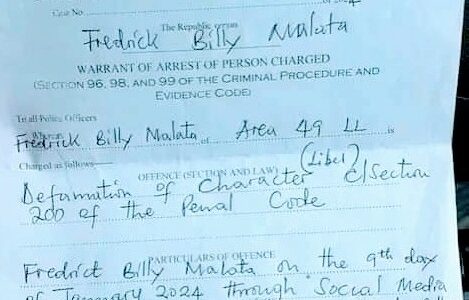 Case No. of 2024
The Republic versus
Fredrick Billy Malata
WARRANT OF ARREST OF PERSON CHARGED
(SECTION 96, 98, AND 99 OF THE CRIMINAL PROCEDURE AND
EVIDENCE CODE)
To all Police Officers
Whereas
Fredrick Billy Malata of Area 49 LL is
Charged as follows—
OFFENCE (SECTION AND LAW)
(Libel)
Deformation of Character c/Section
200 of the Penal Code
PARTICULARS OF OFFENCE
Fredrict Billy Malata on the 9th day
of January 2024 through Social Media